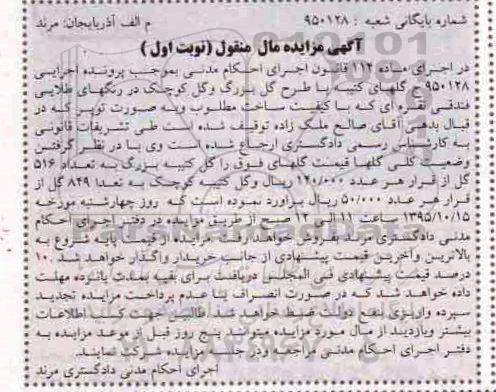 شماره بایگانی شعبه : ۹۵۰۱۲۸ م الف آذربایجان: مرند
آگهی مزایده مال منقول (نوبت اول)
در اجرای ماده ۱۱۴ قانون اجرای احکام مدنی بموجب پرونده اجرایی
۹۵۰۱۲۸ ج گلهای کتیبه با طرح گل بزرگ وگل کوچک در رنگهای طلایی
فندقی نقره ای که با کیفیت ساخت مطلوب وبه صورت توپر که در
قبال بدهی آقای صالح ملک زاده توقیف شده است طی تشریفات قانونی
به کارشناس رسمی دادگستری ارجاع شده است وی با در نظر گرفتن
وضعیت کلی گلها قیمت گلهای فوق را گل کتیبه بزرگ به تعداد ۵۱۶
گل از قرار هر عدد ۱۴۰/۰۰۰ ریال وگل کتیبه کوچک به تعدا ۸۴۹ گل از
قرار هر عدد ۵۰/۰۰۰ ریال برآورد نموده است که روز چهارشنبه مورخه
۱۳۹۵/۱۰/۱۵ ساعت ۱۱ الی ۱۲ صبح از طریق مزایده در دفتر اجرای احکام
مدنی دادگستری مرند بفروش خواهد رفت مزایده از قیمت پایه شروع به
بالاترین وآخرین قیمت پیشنهادی از جانب خریدار واگذار خواهد شد ۱۰
درصد قیمت پیشنهادی فی المجلس دریافت برای بقیه بمدت پانزده مهلت
داده خواهد شد که در صورت انصراف یا عدم پرداخت مزایده تجدید
سپرده واریزی بنفع دولت ضبط خواهد شد طالبین جهت کسب اطلاعات
بیشتر وبازدید از مال مورد مزایده میتوانند پنج روز قبل از موعد مزایده به
دفتر اجرای احکام مدنی مراجعه ودر جلسه مزایده شرکت نمایند.
اجرای احکام مدنی دادگستری مرند